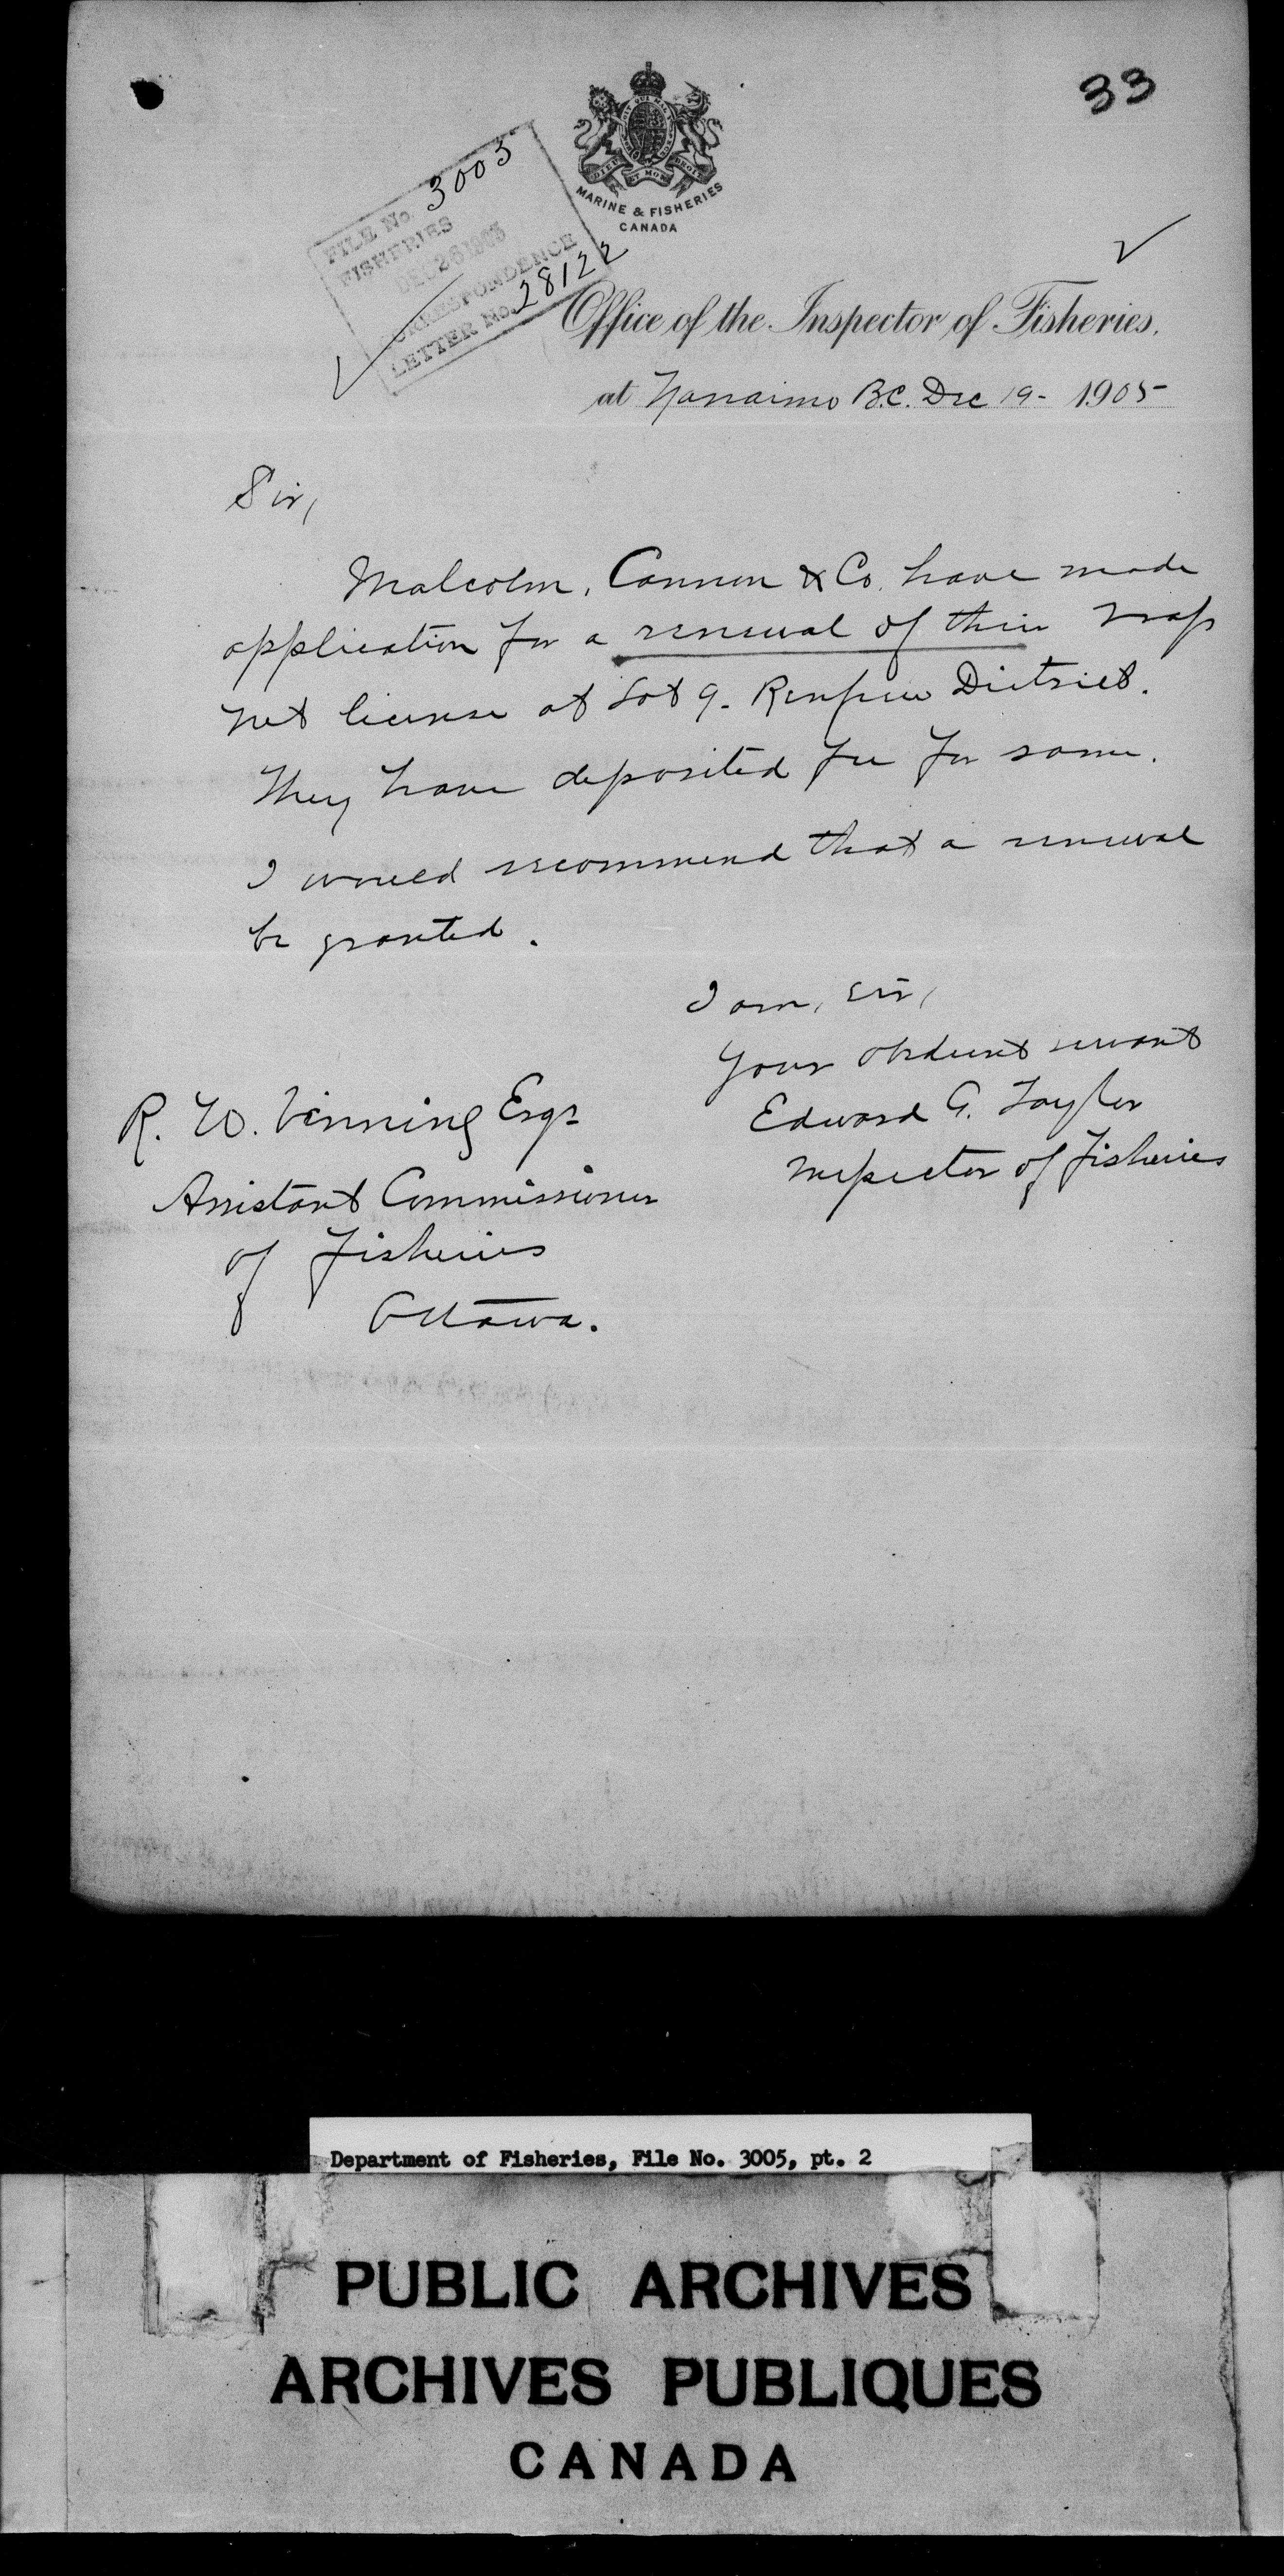 33
HONI SOIT QUI MAL
DIEU ET MON DROIT
MARINE & FISHERIES
CANADA
FILE No. 3005
FISHERIES
DEC 26 1905
CORRESPONDENCE
LETTER No. 28122
Office of the Inspector of Fisheries,
at Nanaimo B.C. Dec 19- 1905
Sir,
Malcolm, Cannon & Co. have made
application for a renewal of their trap
net license at Lot 9. Renfrew District.
They have deposited fee for same.
I would recommend that a renewal
be granted.
I am, Sir,
Your obedient servant
Edward G. Taylor
Inspector of Fisheries
R. W. Venning Esqr
Assistant Commissioner
of Fisheries
Ottawa.
Department of Fisheries, File No. 3005, pt. 2
PUBLIC ARCHIVES
ARCHIVES PUBLIQUES
CANADA